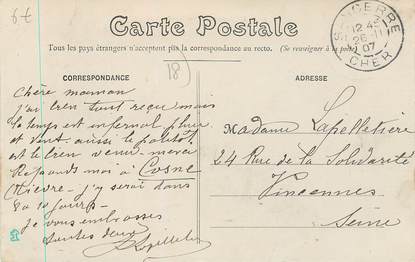 6€
Carte Postale
Tous les pays étrangers n'acceptent pas la correspondance au recto. (Se renseigner à la poste)
SANCERRE
12 45
26 -11
07
CHER
18
CORRESPONDANCE
ADRESSE
Chère maman
j'ai bien tout reçu mais
le temps est infernal pluie
et vent. aussi le paletot
est le bien venu. merci
Réponds moi à Cosne
Nièvre. j'y serai dans
8 à 10 jours.
je vous embrasse
toutes deux
Lapelletier
Madame Lapelletière
24 Rue de la Solidarité
Vincennes
Seine